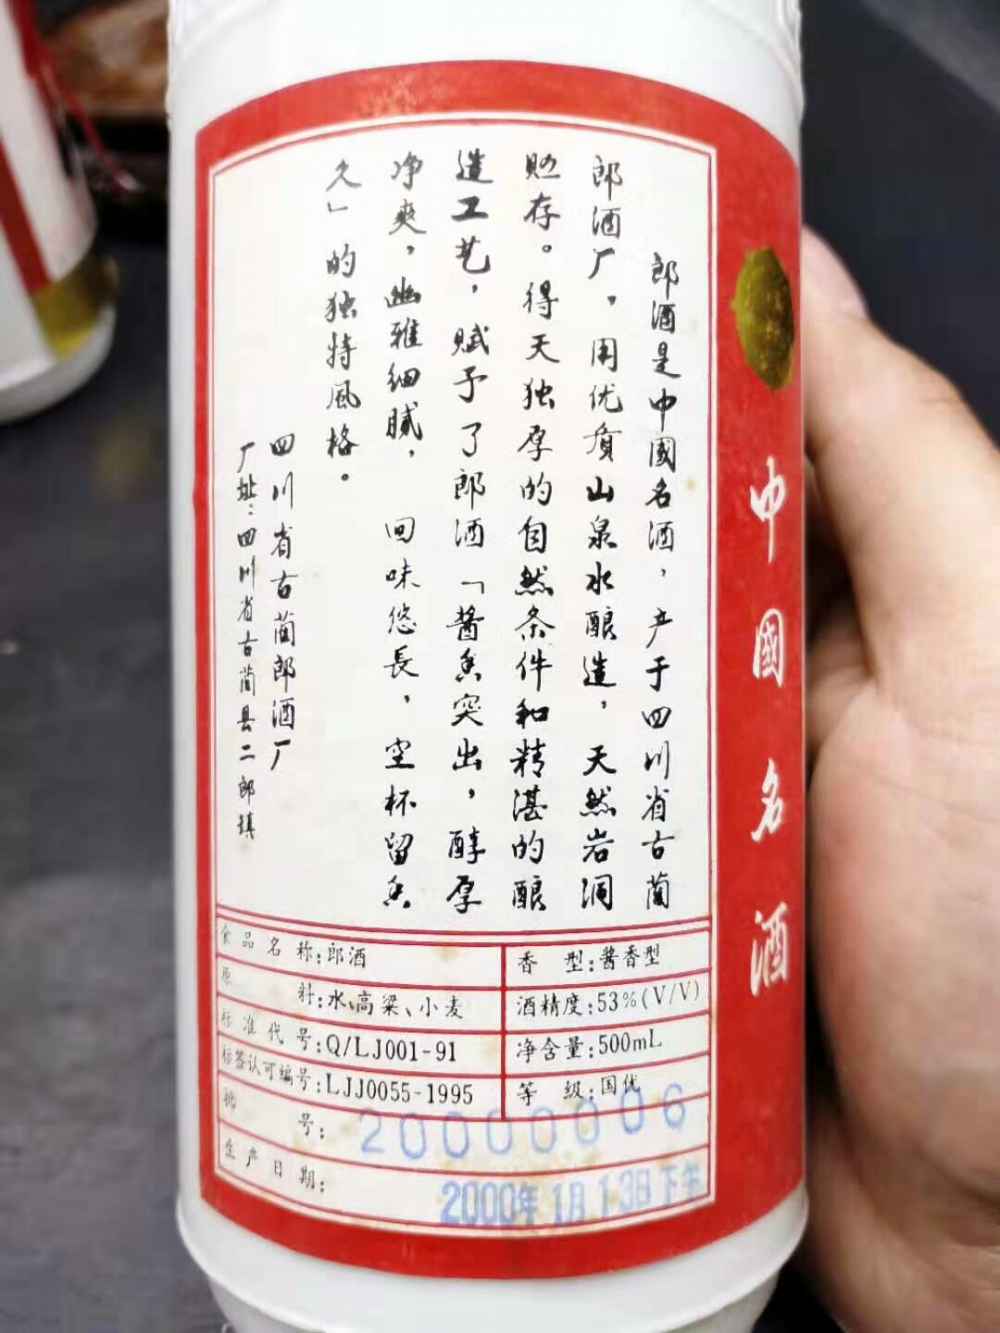 中國名酒
郎酒是中國名酒，产于四川省古蔺
郎酒厂，用优質山泉水酿造，天然岩洞
贮存。得天独厚的自然条件和精湛的酿
造工艺，赋予了郎酒「酱香突出，醇厚
净爽，幽雅细腻，回味悠長，空杯留香
久」的独特風格。
四川省古蔺郎酒厂
厂址：四川省古蔺县二郎镇
食品名称：郎酒
香型：酱香型
原料：水、高粱、小麦
酒精度：53%(V/V)
标准代号：Q/LJ001-91
净含量：500mL
标签认可编号：LJJ0055-1995
等级：国优
批号：20000006
生产日期：2000年1月13日下午